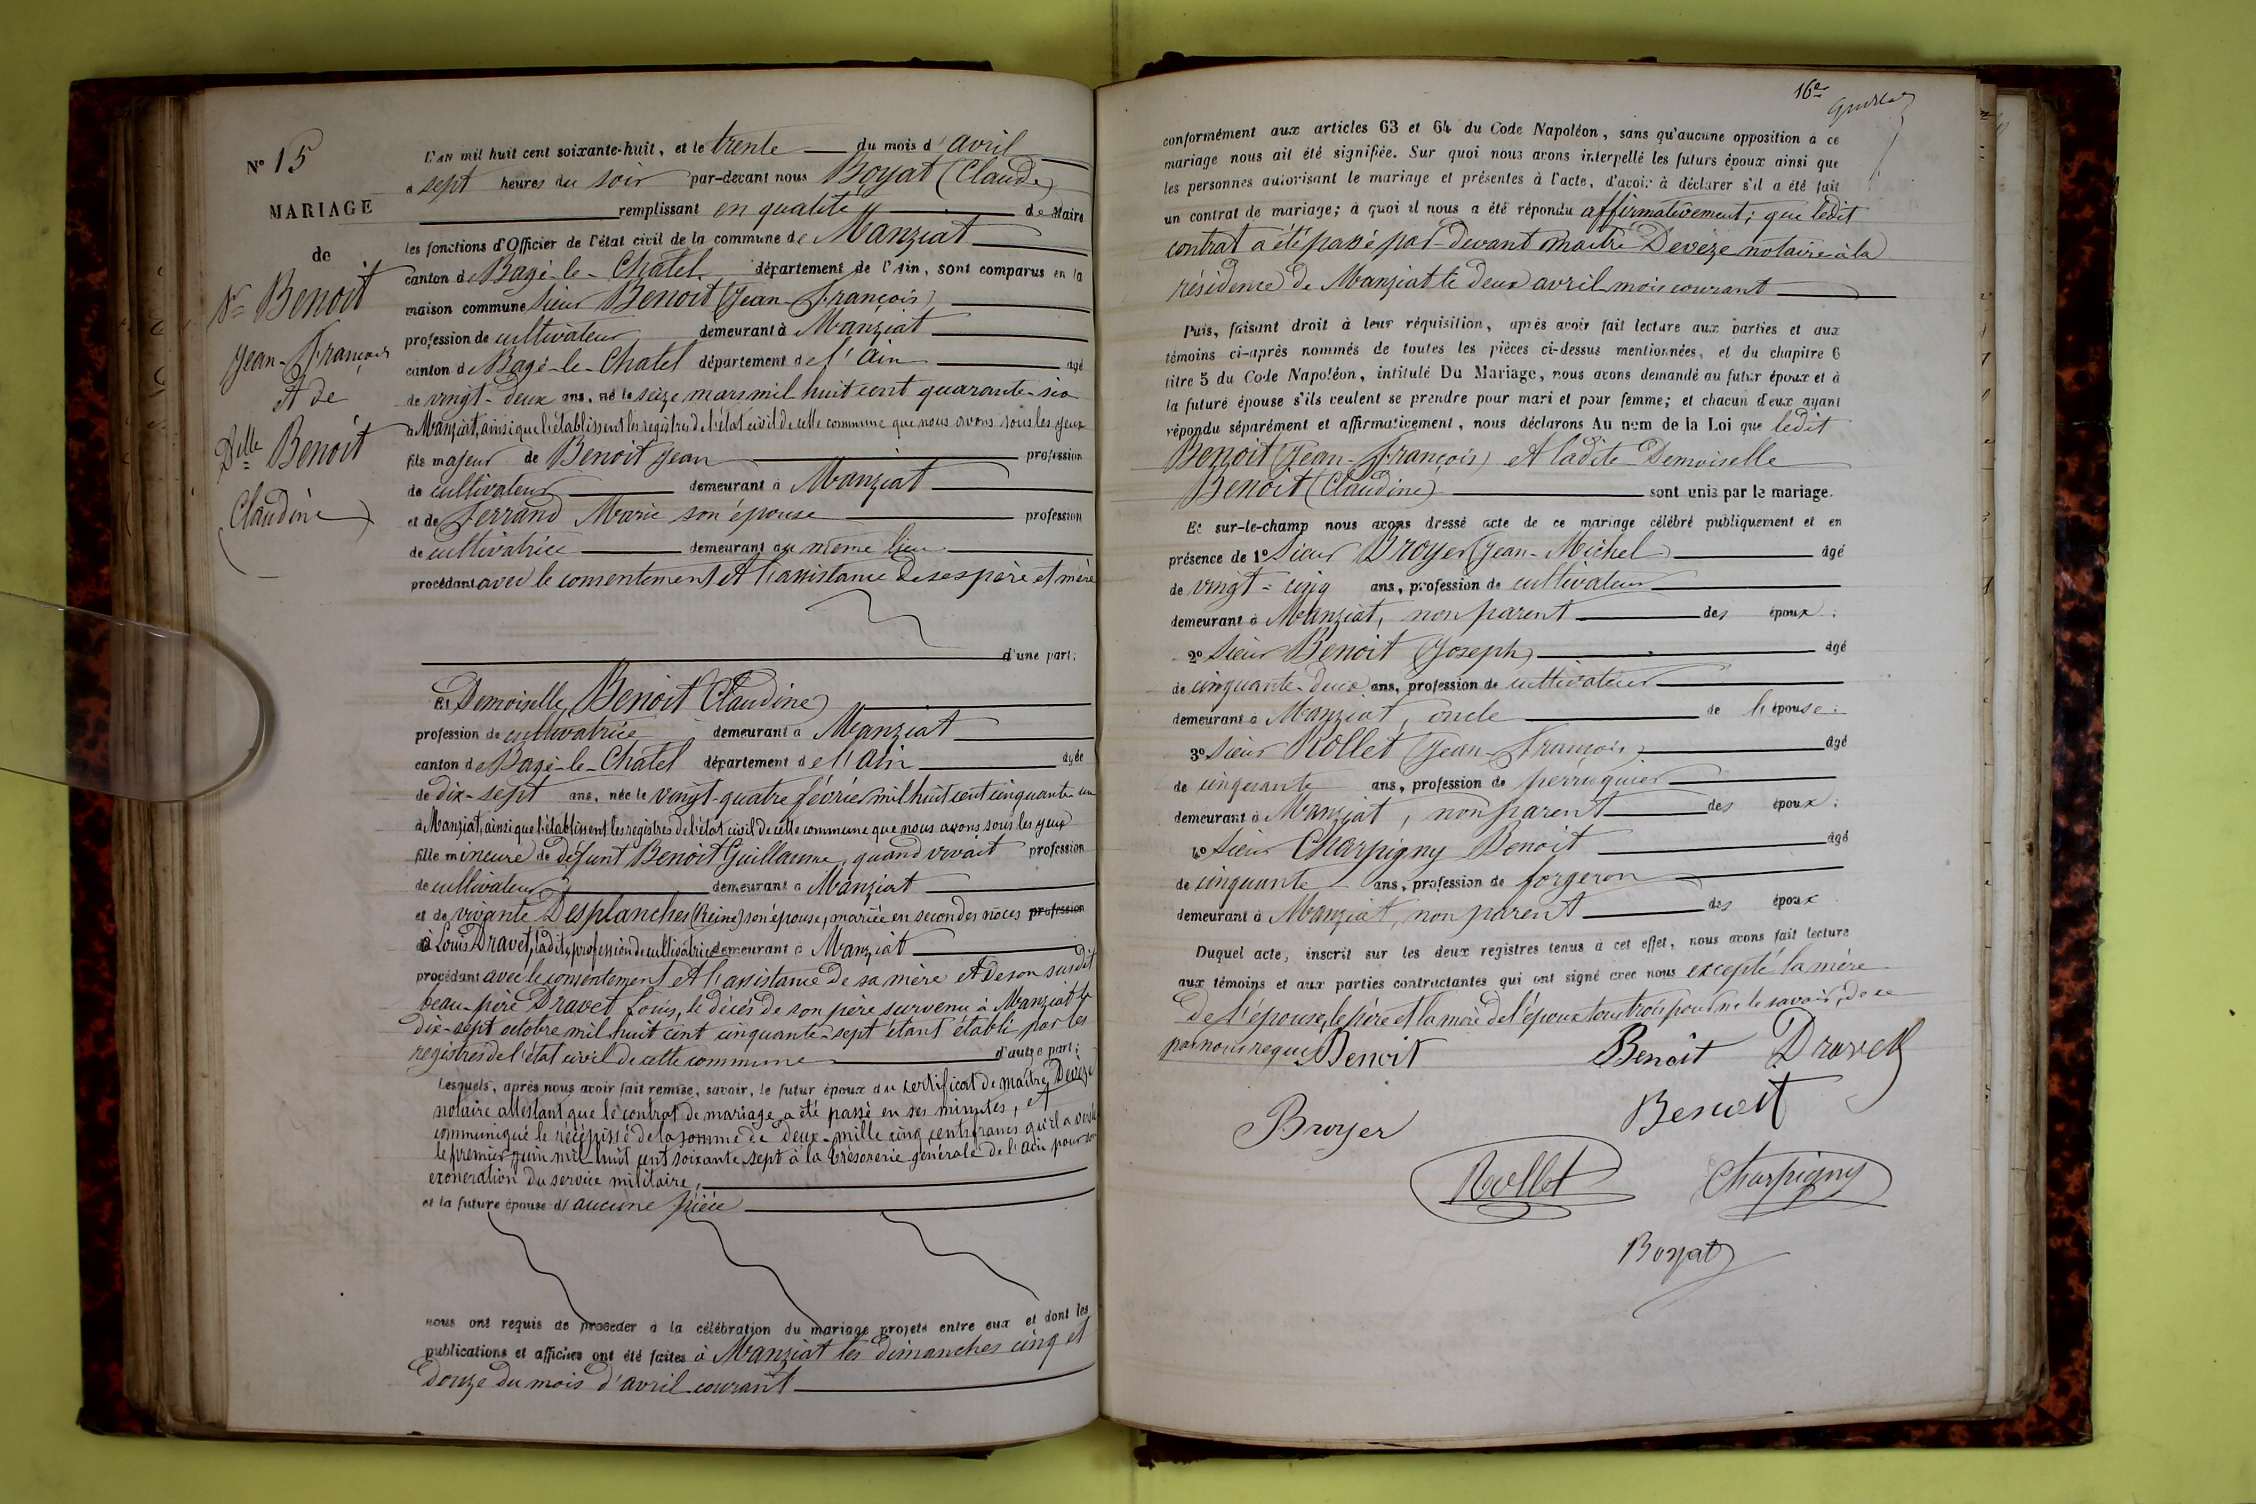 N° 15
MARIAGE
de
Sr Benoit
Jean-François
Et de
Dlle Benoit
(Claudine)
L'an mil huit cent soixante-huit, et le trente du mois d'avril
à sept heures du soir par-devant nous Boyat (Claude)
remplissant en qualité de Maire
les fonctions d'Officier de l'état civil de la commune de Manziat
canton de Bagé-le-Chatel département de l'Ain, sont comparus en la
maison commune Sieur Benoit (Jean-François)
profession de cultivateur demeurant à Manziat
canton de Bagé-le-Chatel département de l'Ain âgé
de vingt-deux ans, né le seize mars mil huit cent quarante-six
à Manziat, ainsi que l'établissent les registres de l'état civil de cette commune que nous avons sous les yeux
fils majeur de Benoit Jean profession
de cultivateur demeurant à Manziat
et de Ferrand Marie son épouse profession
de cultivatrice demeurant au même lieu
procédant avec le consentement et l'assistance de ses père et mère
d'une part;
Et Demoiselle Benoit (Claudine)
profession de cultivatrice demeurant à Manziat
canton de Bagé-le-Chatel département de l'Ain âgée
de dix-sept ans, née le vingt-quatre février mil huit cent cinquante-un
à Manziat, ainsi que l'établissent les registres de l'état civil de cette commune que nous avons sous les yeux
fille mineure de défunt Benoit Guillaume, quand vivait profession
de cultivateur demeurant à Manziat
et de vivante Desplanches (Reine) son épouse, mariée en secondes noces profession
à Louis Dravet, ladite profession de cultivatrice demeurant à Manziat
procédant avec le consentement et l'assistance de sa mère et de son susdit
beau-père Dravet Louis, le décès de son père survenu à Manziat le
dix-sept octobre mil huit cent cinquante-sept étant établi par les
registres de l'état civil de cette commune d'autre part;
Lesquels, après nous avoir fait remise, savoir, le futur époux du certificat de maître Devèze
notaire attestant que le contrat de mariage a été passé en ses minutes, et
communiqué le récépissé de la somme de deux-mille cinq cents francs qu'il a versé
le premier juin mil huit cent soixante-sept à la trésorerie générale de l'Ain pour son
exonération du service militaire,
et la future épouse d'aucune pièce
nous ont requis de procéder à la célébration du mariage projeté entre eux et dont les
publications et affiches ont été faites à Manziat les dimanches cinq et
douze du mois d'avril courant
16e
conformément aux articles 63 et 64 du Code Napoléon, sans qu'aucune opposition à ce
mariage nous ait été signifiée. Sur quoi nous avons interpellé les futurs époux ainsi que
les personnes autorisant le mariage et présentes à l'acte, d'avoir à déclarer s'il a été fait
un contrat de mariage; à quoi il nous a été répondu affirmativement; que ledit
contrat a été passé par-devant maître Devèze notaire à la
résidence de Manziat le deux avril mois courant
Puis, faisant droit à leur réquisition, après avoir fait lecture aux parties et aux
témoins ci-après nommés de toutes les pièces ci-dessus mentionnées, et du chapitre 6
titre 5 du Code Napoléon, intitulé Du Mariage, nous avons demandé au futur époux et à
la future épouse s'ils veulent se prendre pour mari et pour femme; et chacun d'eux ayant
répondu séparément et affirmativement, nous déclarons Au nom de la Loi que ledit
Benoit (Jean-François) et ladite Demoiselle
Benoit (Claudine) sont unis par le mariage.
Et sur-le-champ nous avons dressé acte de ce mariage célébré publiquement et en
présence de 1° Sieur Broyer (Jean-Michel) âgé
de vingt-cinq ans, profession de cultivateur
demeurant à Manziat, non parent des époux;
2° Sieur Benoit (Joseph) âgé
de cinquante-deux ans, profession de cultivateur
demeurant à Manziat, oncle de l'épouse;
3° Sieur Rollet (Jean-François) âgé
de cinquante ans, profession de perruquier
demeurant à Manziat, non parent des époux;
4° Sieur Charpigny Benoit âgé
de cinquante ans, profession de forgeron
demeurant à Manziat, non parent des époux
Duquel acte, inscrit sur les deux registres tenus à cet effet, nous avons fait lecture
aux témoins et aux parties contractantes qui ont signé avec nous excepté la mère
de l'épouse, le père et la mère de l'époux tous trois pour ne le savoir, de ce
par nous requis
Benoit Benoit Dravet
Benoit
Broyer
Rollet Charpigny
Boyat